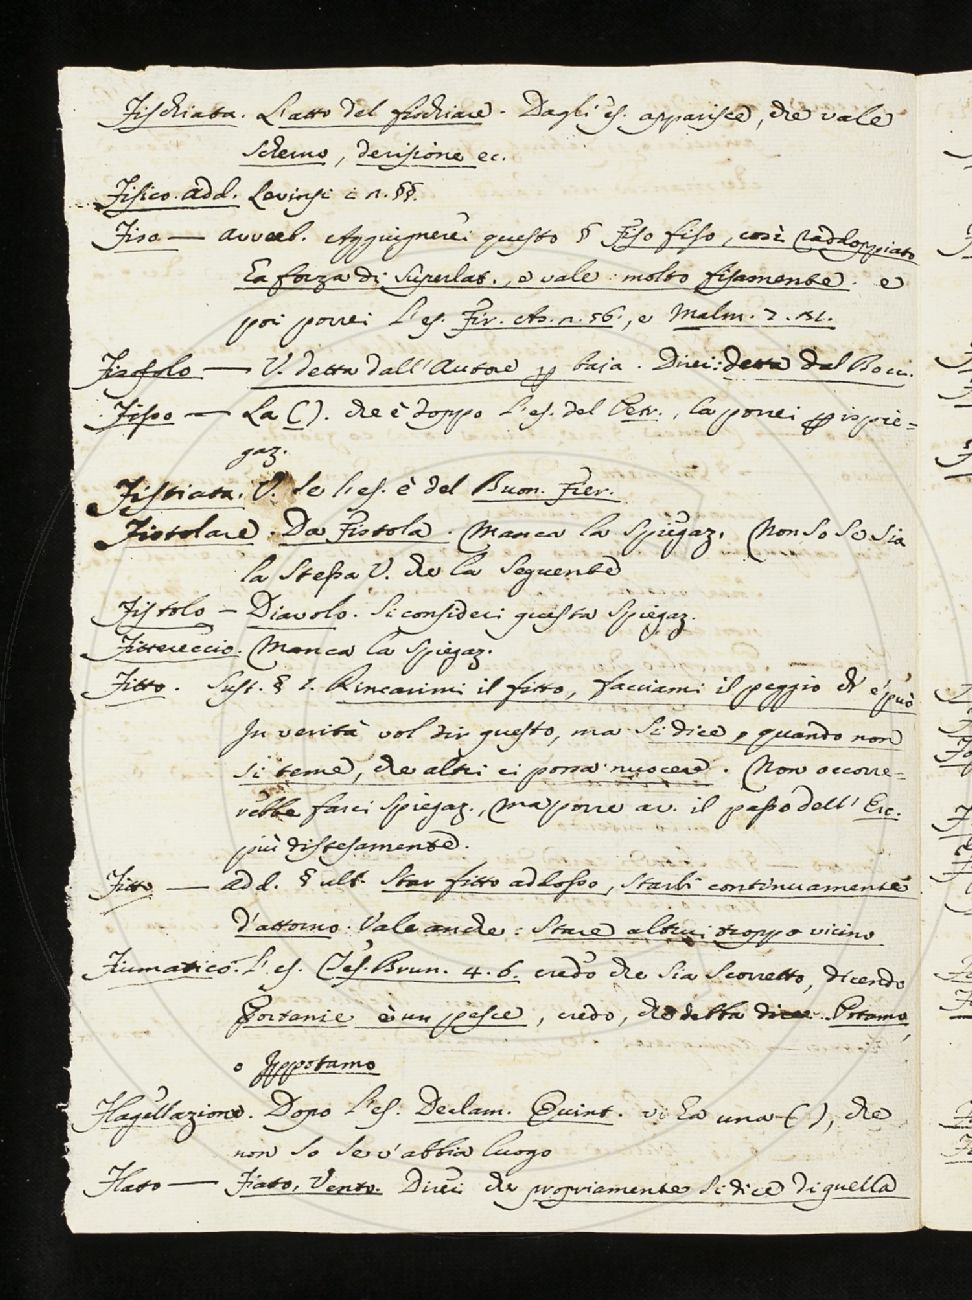 Fischiata. L'atto del fischiare. Dagli es. apparisce, che vale
scherno, derisione ec.
Fisico. add. Levinsi i n. §§.
Fiso — avverb. Aggiugnerei questo § Fiso fiso, così raddoppiato
ha forza di superlat., e vale: molto fisamente. e
poi porrei l'es. Fir. As. n. 56., e Malm. 7. 81.
— V. detta dall'Autore p baja. Direi: detta dal Bocc.
Fisso — La ( ). che è doppo l'es. del Petr., la porrei pp ispie=
gaz.
Fistiata. V. Se l'es. è del Buon. Fier.
Fistolare. Da Fistola. Manca la Spiegaz. Non so se sia
la stessa V. che la seguente
Fistolo — Diavolo. Si consideri questa Spiegaz.
Fittereccio. Manca la Spiegaz.
Fitto. Sust. § 1. Rincarimi il fitto, facciami il peggio ch' e' può
In verità vol dir questo, ma si dice, quando non
si teme, che altri ci possa nuocere. Non occorre=
rebbe farci Spiegaz., ma porre av. il passo dell' Erc.
più distesamente.
Fitto — add. § ult. Star fitto addosso, starli continuamente
d'attorno. Vale anche: Stare altrui troppo vicino
Fiumatico. L'es. Tes. Brun. 4. 6. credo che sia scorretto, dicendo
è un pesce, credo, che debba dicer Potamo,
o Ippotamo
Flagellazione. Dopo l'es. Declam. Quint. vi ha una ( ), che
non so se v'abbia luogo
Flato — Fiato, Vento. Direi che propriamente si dice di quella